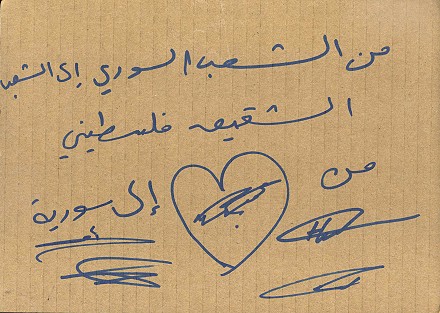 من الشعب السوري إلى الشعب
الشقيق فلسطيني
من
إلى سورية